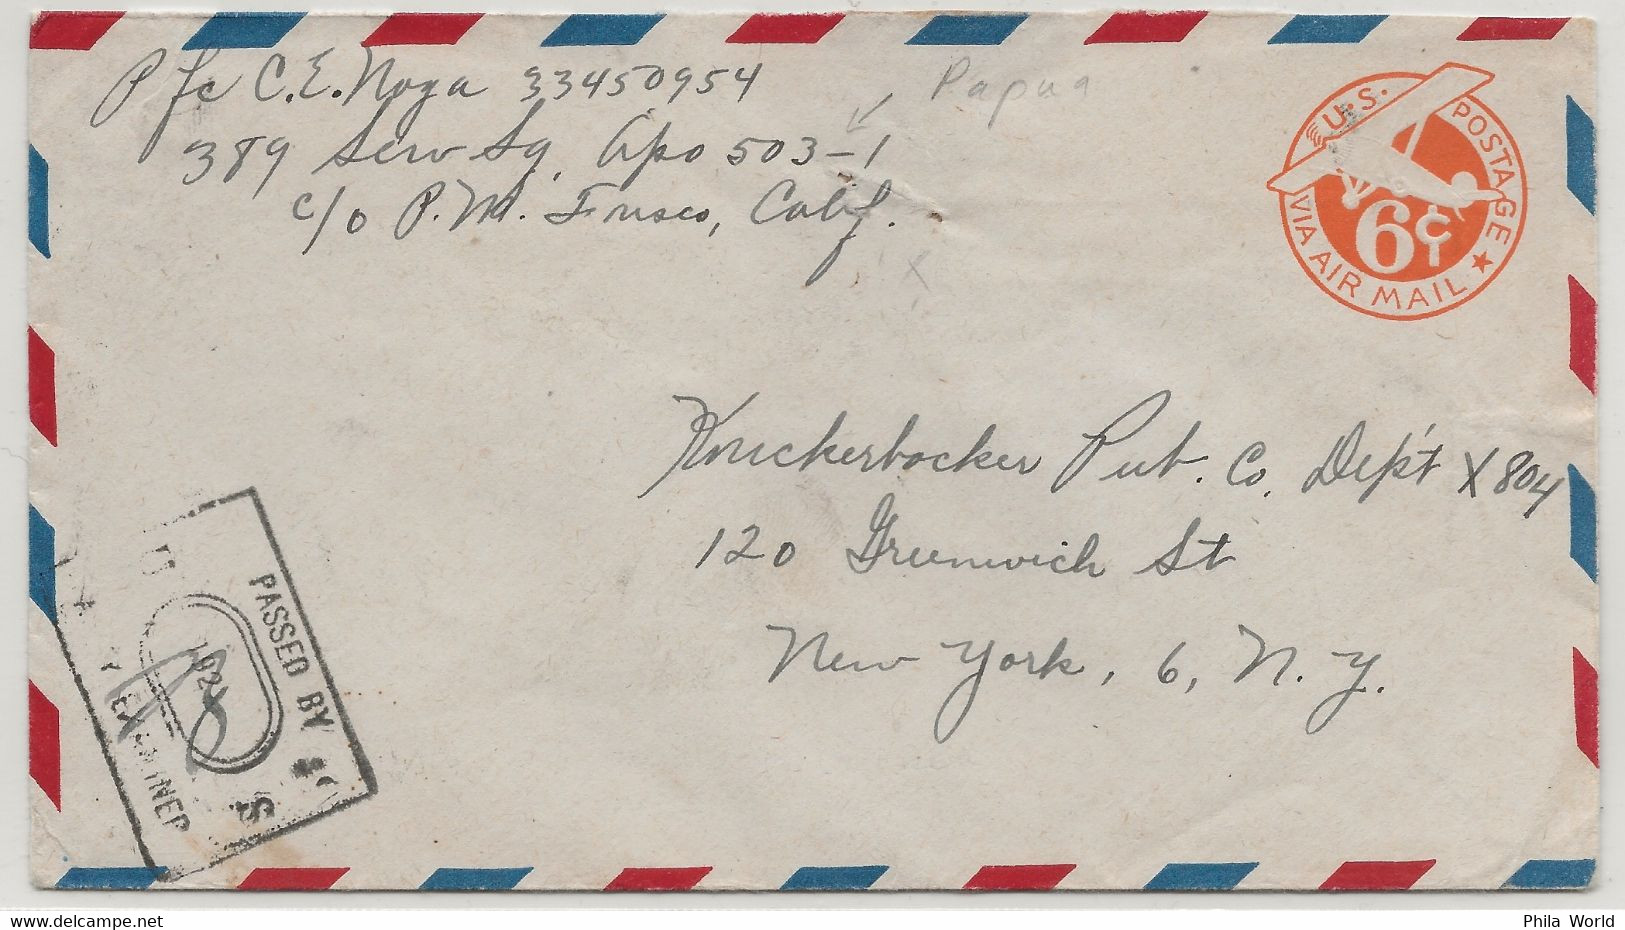 Pfc C.E. Noga 33450954
389 Serv Sq, Apo 503-1
Papua
c/o P.M. Frisco, Calif.
U.S. POSTAGE
VIA AIR MAIL
6¢
Knickerbocker Pub. Co. Dep't X804
120 Greenwich St
New York, 6, N.Y.
PASSED BY
U S
EXAMINER
delcampe.net
Phila World